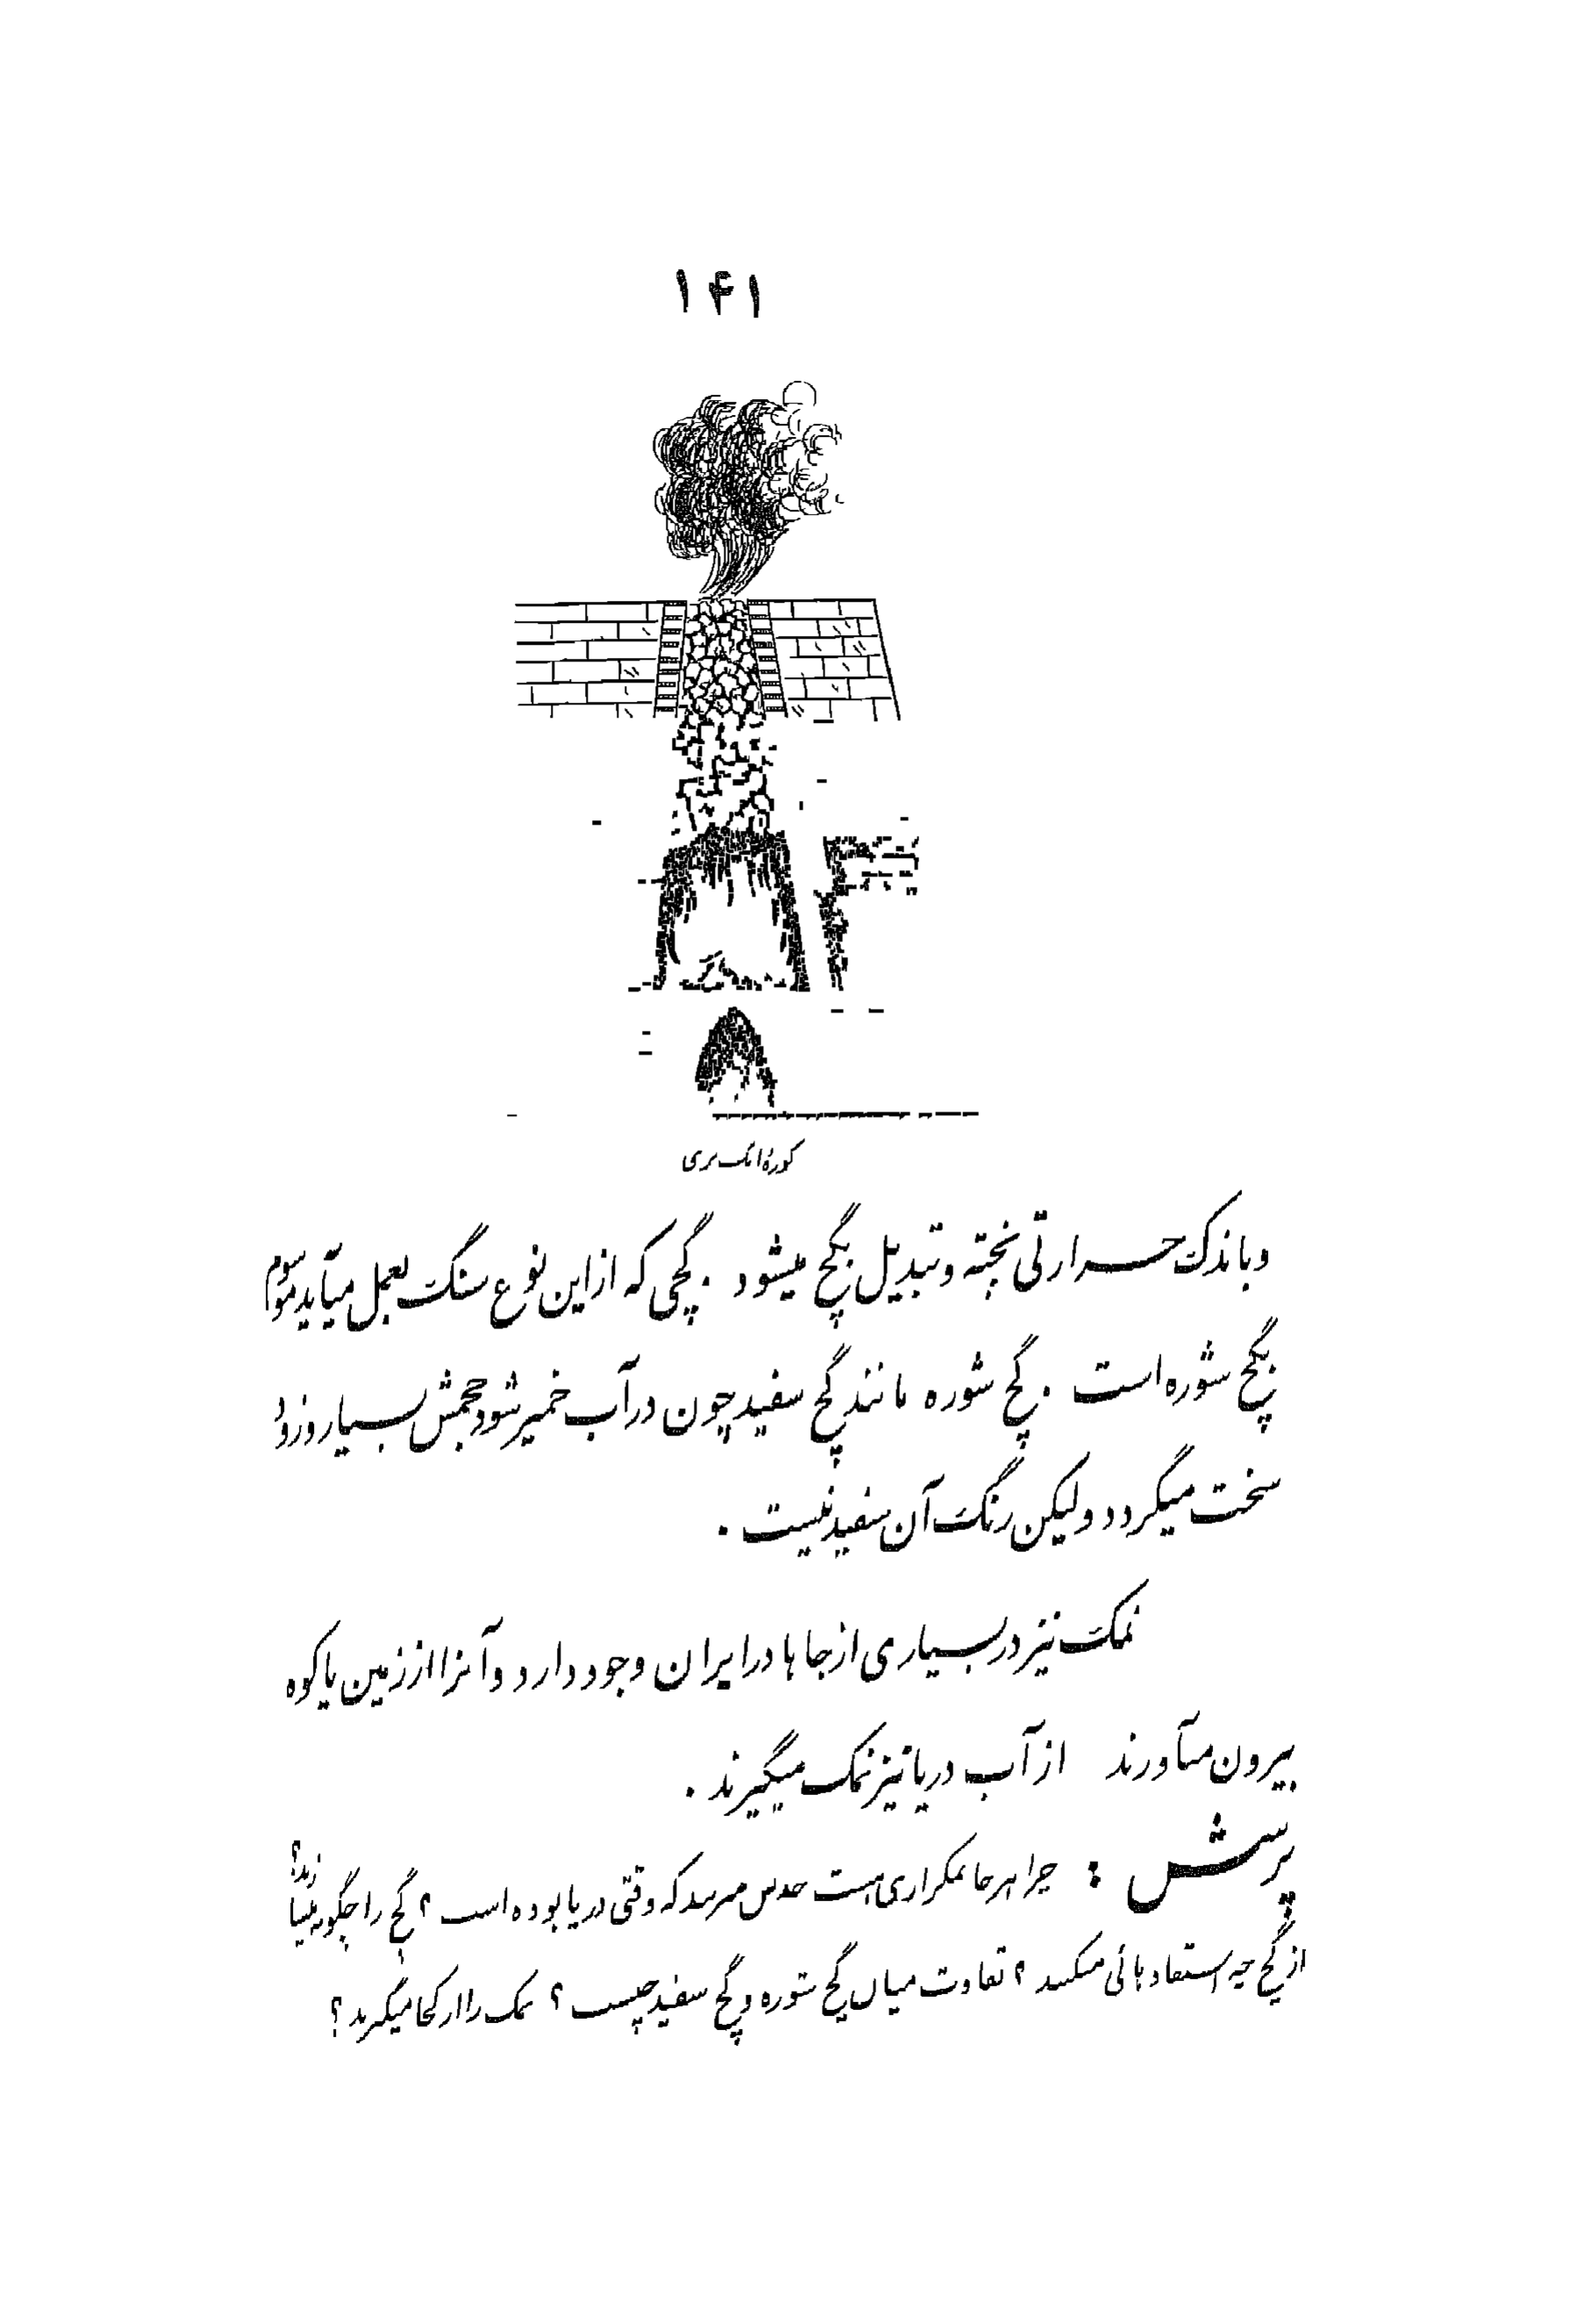 ۱۴۱
کورهٔ آهک پزی
و باندک حرارتی پخته و تبدیل بگچ میشود . گچی که از این نوع سنگ بعمل میآید موسوم
بگچ شوره است . گچ شوره مانند گچ سفید چون در آب خمیر شود حجمش بسیار و زود
سخت میگردد ولیکن رنگ آن سفید نیست .
نمک نیز در بسیاری از جاها در ایران وجود دارد و آنرا از زمین یا کوه
بیرون میآورند از آب دریا نیز نمک میگیرند .
پرسش : چرا هر جا نمکزاری هست حدس میزنند که وقتی دریا بوده است ؟ گچ را چگونه میسازند ؟
از گچ چه استفاده‌هائی میکنند ؟ تفاوت میان گچ شوره و گچ سفید چیست ؟ نمک را از کجا میگیرند ؟